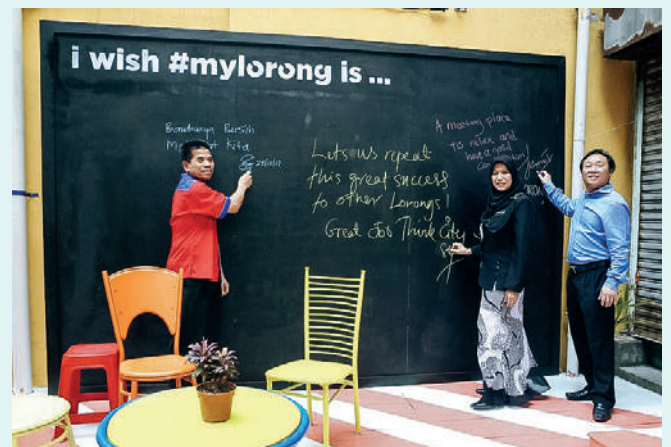 i wish #mylorong is ...
Bersih
Kita
Lets us repeat
this great success
to other Lorongs!
Great Job Think City
A meeting place
to relax and
have a good